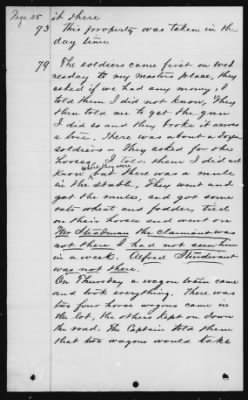 Page 25 it there
73 This property was taken in the
day time
79 The soldiers came first on Wed
nesday to my masters place, they
asked if we had any money, I
told them I did not know, They
then told me to get the gun
I did so and they broke it across
a tree. There was about a dozen
soldiers - they asked for the
horses, I told them I did not
know where they were but there was a mule
in the stable, They went and
got the mule, and got some
oats wheat and fodder, tied
on their horses and went on
Mr Steadman the claimant was
not there I had not seen him
in a week. Alfred Sturdivant
was not there.
On Thursday a wagon train came
and took everything. There was
two four horse wagons came in
the lot, the others kept on down
the road. The Captain told them
that two wagons would take